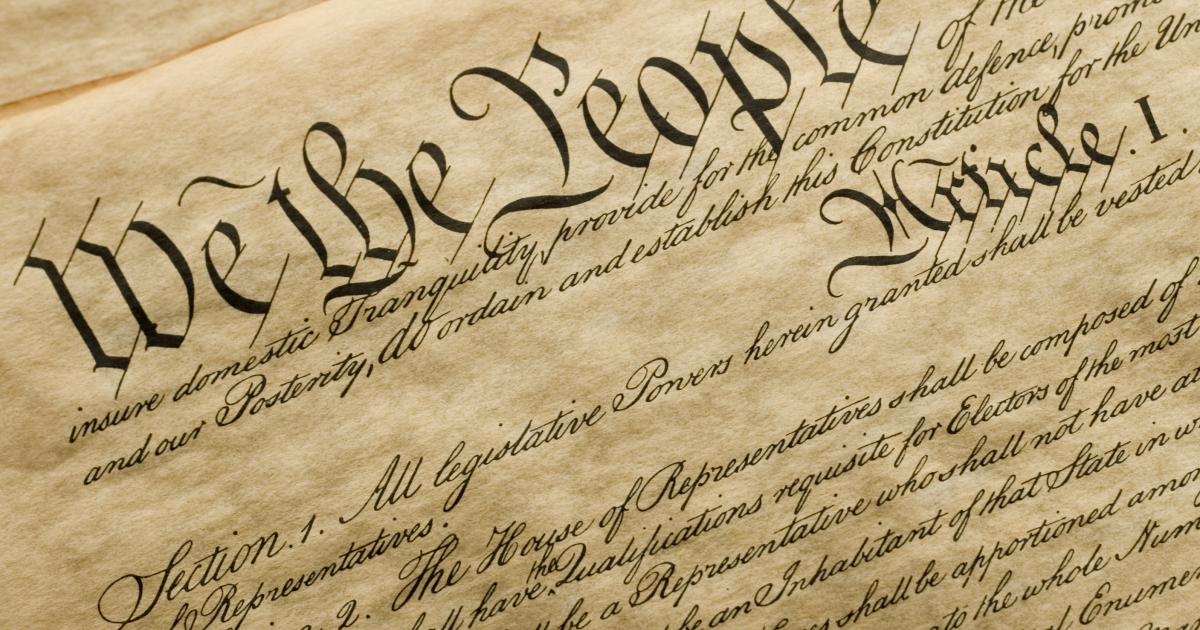 We the People of the
insure domestic Tranquility, provide for the common defence, promo
and our Posterity, do ordain and establish this Constitution for the Un
Article. I.
Section. 1. All legislative Powers herein granted shall be vested
Representatives.
2. The House of Representatives shall be composed of
the
have Qualifications requisite for Electors of the most
be a Representative who shall not have at
be an Inhabitant of that State in w
shall be apportioned amon
to the whole Num
Enumer